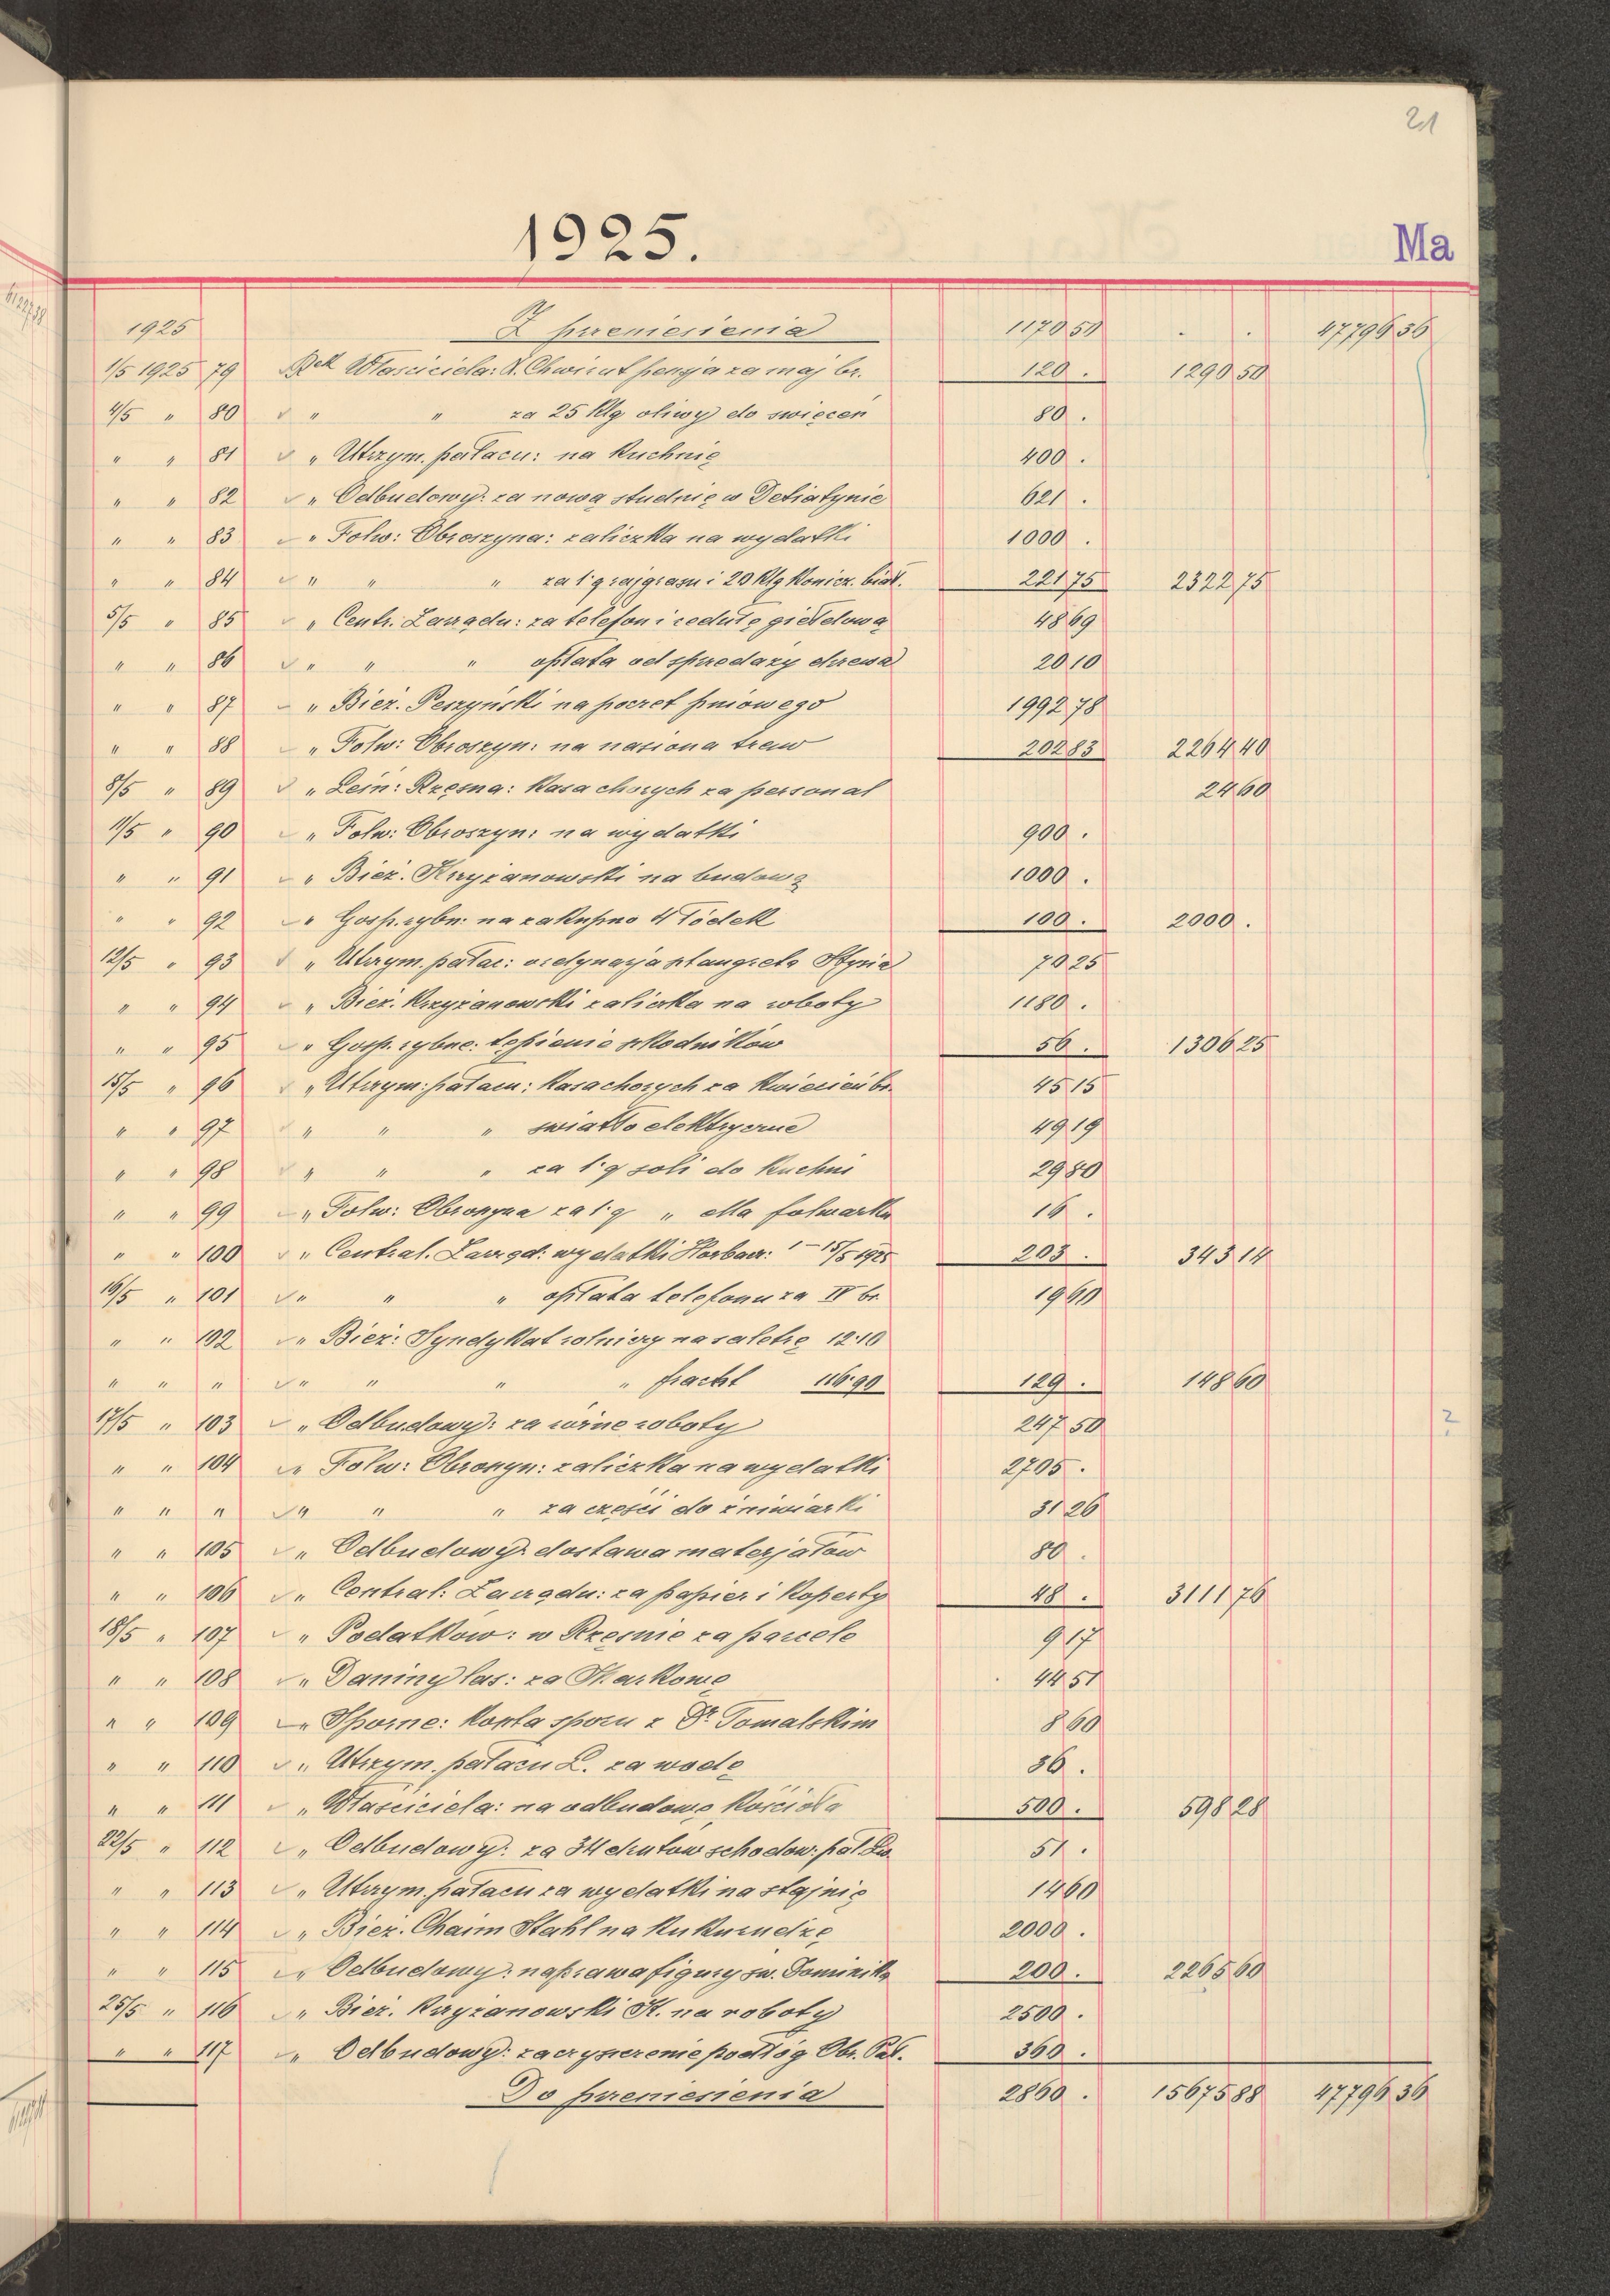 21
1925.
Ma
1925 Z przeniesienia 1170 50 . . 47796 36
1/5 1925 79 Rek Właściciela: K. Chwirut pensja za maj br. 120 . 1290 50
4/5 " 80 " " za 25 klg oliwy do święceń 80 .
" " 81 " Utrzym. pałacu: na kuchnię 400 .
" " 82 " Odbudowy: za nową studnię w Detiatynie 621 .
" " 83 " Folw: Obroszyna: zaliczka na wydatki 1000 .
" " 84 " " " za 1 q rajgrasu i 20 klg konicz. biał. 221 75 2322 75
5/5 " 85 " Centr. Zarządu: za telefon i cedułę giełdową 48 69
" " 86 " " " opłata od sprzedaży drzewa 20 10
" " 87 " Bież. Peszyński na poczet pniowego 1992 78
" " 88 " Folw: Obroszyn: na nasiona traw 202 83 2264 40
8/5 " 89 " Leśn: Rzęsna: kasa chorych za personal 24 60
11/5 " 90 " Folw: Obroszyn: na wydatki 900 .
" " 91 " Bież. Krzyżanowski na budowę 1000 .
" " 92 " Gosp. rybn: na zakupno 4 łódek 100 . 2000 .
12/5 " 93 " Utrzym. pałac: ordynarja Styria 70 25
" " 94 " Bież. Krzyżanowski zaliczka na roboty 1180 .
" " 95 " Gosp. rybne: tępienie szkodników 56 . 1306 25
15/5 " 96 " Utrzym: pałacu: kasa chorych za kwiecień br. 45 15
" " 97 " " " światło elektryczne 49 19
" " 98 " " " za 1 q soli do kuchni 29 80
" " 99 " Folw: Obroszyna za 1 q " dla folwarku 16 .
" " 100 " Central. Zarząd: wydatki Horbacz: 1-15/5 1925 203 . 343 14
16/5 " 101 " " " opłata telefonu za IV br. 19 60
" " 102 " Bież: Syndykat rolniczy na saletrę 12.10
" " " " " " " fracht 116.90 129 . 148 60
17/5 " 103 " Odbudowy: za różne roboty 247 50
" " 104 " Folw: Obroszyn: zaliczka na wydatki 2705 .
" " " " " " za części do żniwiarki 31 26
" " 105 " Odbudowy: dostawa materjałów 80 .
" " 106 " Central: Zarządu: za papier i koperty 48 . 3111 76
18/5 " 107 " Podatków: w Rzęśnie za parcele 9 17
" " 108 " Daniny las: za Starkowę 44 51
" " 109 " Sporne: koszta sporu z Dr Tomalskim 8 60
" " 110 " Utrzym. pałacu L. za wodę 36 .
" " 111 " Właściciela: na odbudowę kościoła 500 . 598 28
22/5 " 112 " Odbudowy: za 34 drutów schodow. pał. Lw. 51 .
" " 113 " Utrzym. pałacu za wydatki na stajnię 14 60
" " 114 " Bież. Chaim Stahl na kukurudzę 2000 .
" " 115 " Odbudowy: naprawa figury św. Dominika 200 . 2265 60
25/5 " 116 " Bież. Krzyżanowski K. na roboty 2500 .
" " 117 " Odbudowy: zaczyszczenie podłóg Obr. Pał. 360 .
Do przeniesienia 2860 . 15675 88 47796 36
?